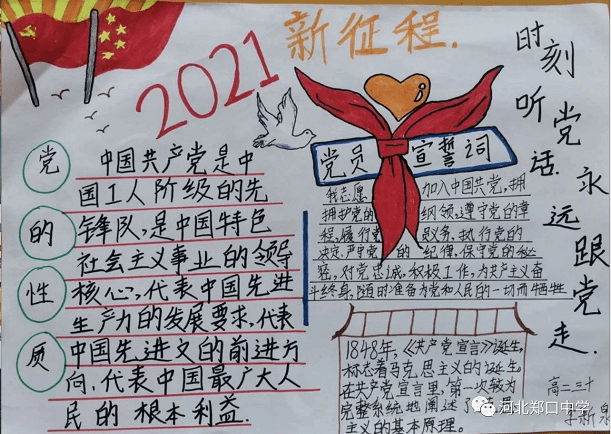 2021
新征程.
时刻听党话永远跟党走.
党的性质
中国共产党是中
国工人阶级的先
锋队,是中国特色
社会主义事业的领导
核心,代表中国先进
生产力的发展要求,代表
中国先进文的前进方
向,代表中国最广大人
民的根本利益.
党员宣誓词
我志愿加入中国共党,拥
拥护党的纲领,遵守党的章
程,履行党员义务,执行党的
决定,严守党的纪律,保守党的秘
密,对党忠诚,积极工作,为共产主义奋
斗终身,随时准备为党和人民的一切而牺牲
1848年,《共产党宣言》诞生,
标志着马克思主义的诞生.
在共产党宣言里,第一次较为
完整系统地阐述了
主义的基本原理.
高二三十
河北郑口中学